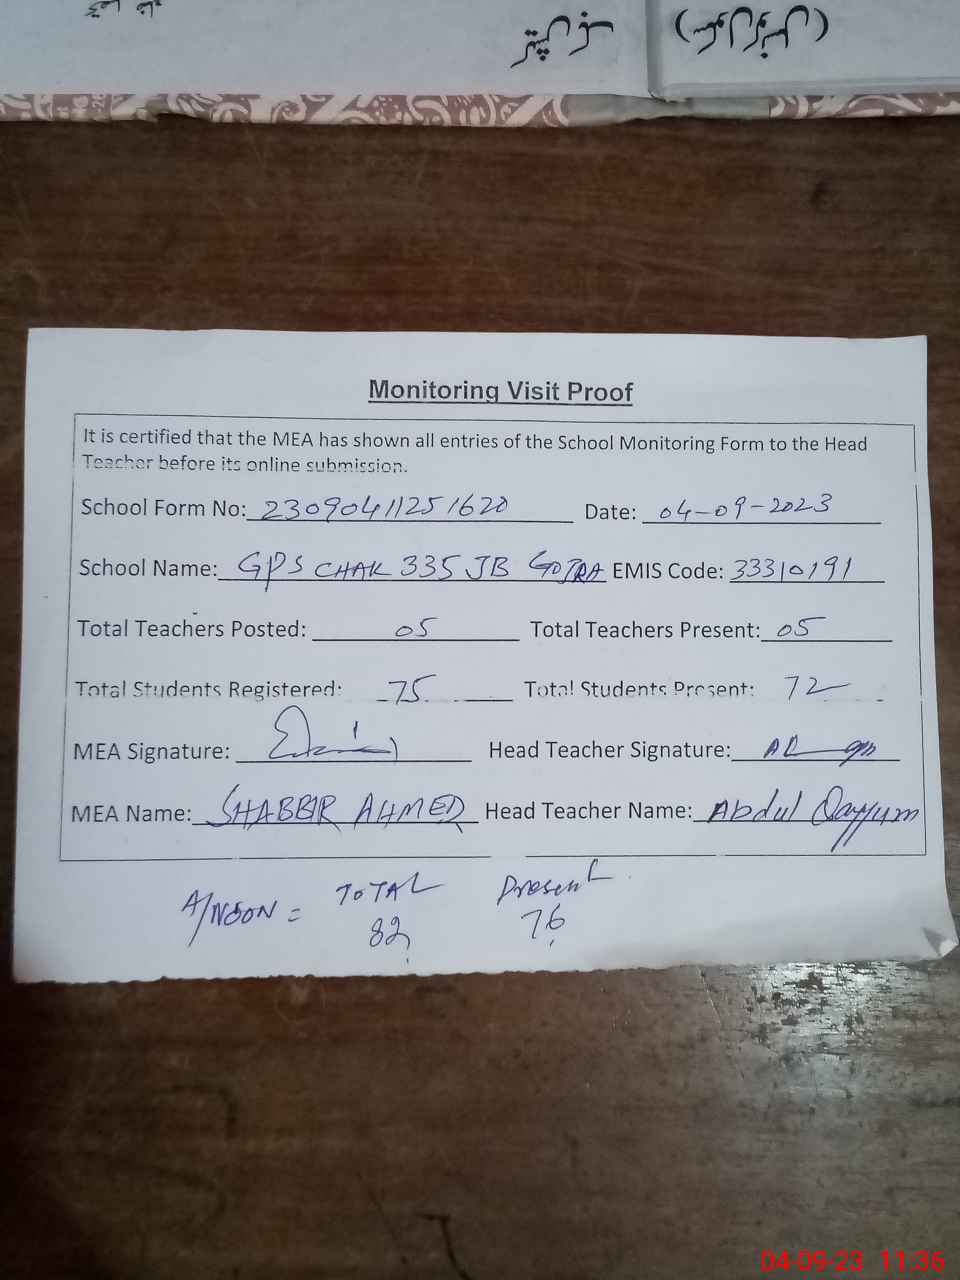 Monitoring Visit Proof
It is certified that the MEA has shown all entries of the School Monitoring Form to the Head
Teacher before its online submission.
School Form No: 23090411251620 Date: 04-09-2023
School Name: GPS CHAK 335 JB GOJRA EMIS Code: 33310191
Total Teachers Posted: 05 Total Teachers Present: 05
Total Students Registered: 75 Total Students Present: 72
MEA Signature: Head Teacher Signature:
MEA Name: SHABBIR AHMED Head Teacher Name: Abdul Qayyum
A/NOON = TOTAL Present
82 76
04-09-23 11:36